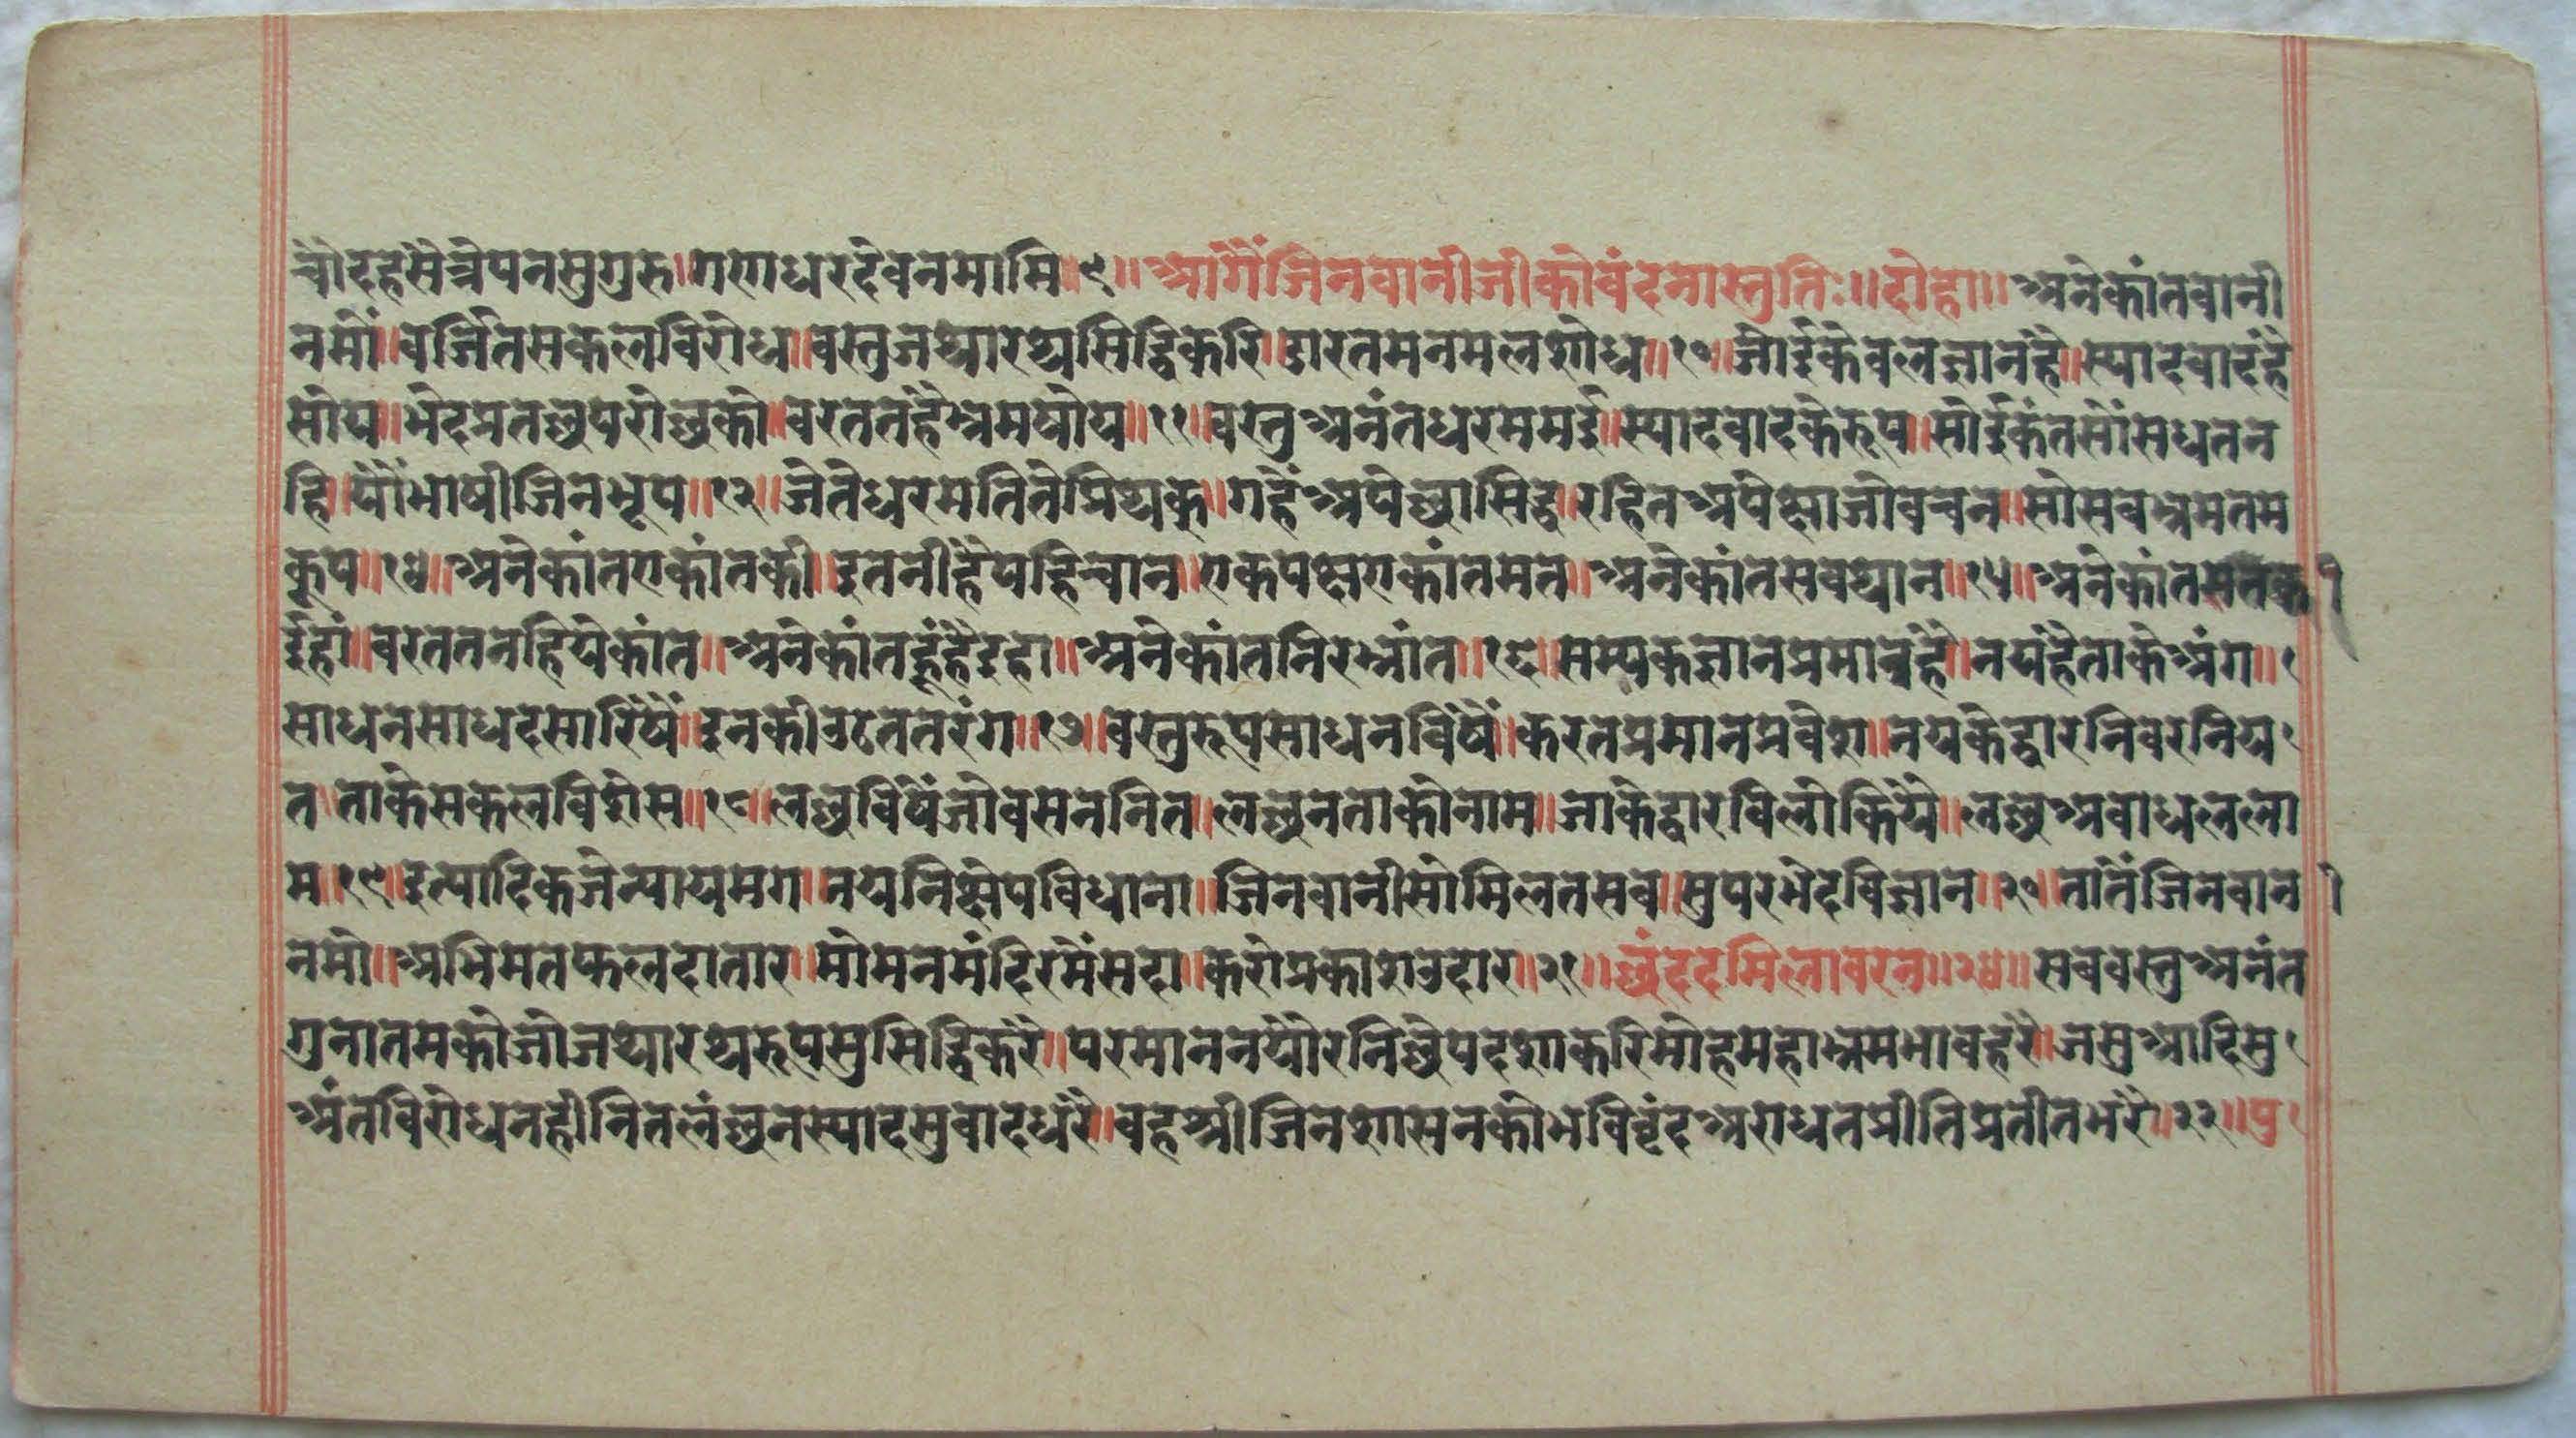 चौदहसैत्रेपनसुगुरु॥गणधरदेवनमामि॥९॥आगैंजिनवानीजीकोवंदनास्तुतिः॥दोहा॥अनेकांतवानी
नमौं॥वर्जितसकलविरोध॥वस्तुजथारथसिद्धिकरि॥डारतमनमलशोध॥१०॥जोईकेवलज्ञानहै॥स्यादवादहै
सोय॥भेदप्रतछपरोछको॥वरततहैभ्रमषोय॥११॥वस्तुअनंतधरममई॥स्यादवादकेरूप॥सोईकंतसौंसधतन
हि॥यौंभाषीजिनभूप॥१२॥जेतेधरमतितेप्रिथक॥गहैंअपेछासिद्ध॥रहितअपेक्षाजोवचन॥सोसबभ्रमतम
कूप॥१४॥अनेकांतएकांतकी॥इतनीहैपहिचान॥एकपक्षएकांतमत॥अनेकांतसबथान॥१५॥अनेकांतमतकी
ईहां॥वरततनहियेकांत॥अनेकांतहूंहैइहा॥अनेकांतनिरभ्रांत॥१६॥सम्यकज्ञानप्रमानहै॥नयहैताकेअंग॥
साधनसाधदसारिषैं॥इनकीउठततरंग॥१७॥वस्तुरूपसाधनविषैं॥करतप्रमानप्रवेश॥नयकेद्वारनिवरनिय
त॥ताकेसकलविशेस॥१८॥लछविषैंजोवसननित॥लछनताकोनाम॥जाकेद्वारविलोकियै॥लछअवाधलला
म॥१९॥इत्यादिकजेन्यायमग॥नयनिक्षेपविधाना॥जिनवानीसोमिलतसब॥सुपरभेदविज्ञान॥२०॥तातैंजिनवानी
नमो॥अभिमतफलदातार॥मोमनमंदिरमैंसदा॥करोप्रकाशउदार॥२१॥छंददमिलावरन॥२४॥सबवस्तुअनंत
गुनातमकोजोजथारथरूपसुसिद्धिकरै॥परमाननयौरनिछेपदशाकरिमोहमहाभ्रमभावहरै॥जसुआदिसु
अंतविरोधनहीनितलंछनस्यादसुवादधरै॥वहश्रीजिनशासनकोभविवृंदअराधतप्रीतिप्रतीतभरै॥२२॥पु